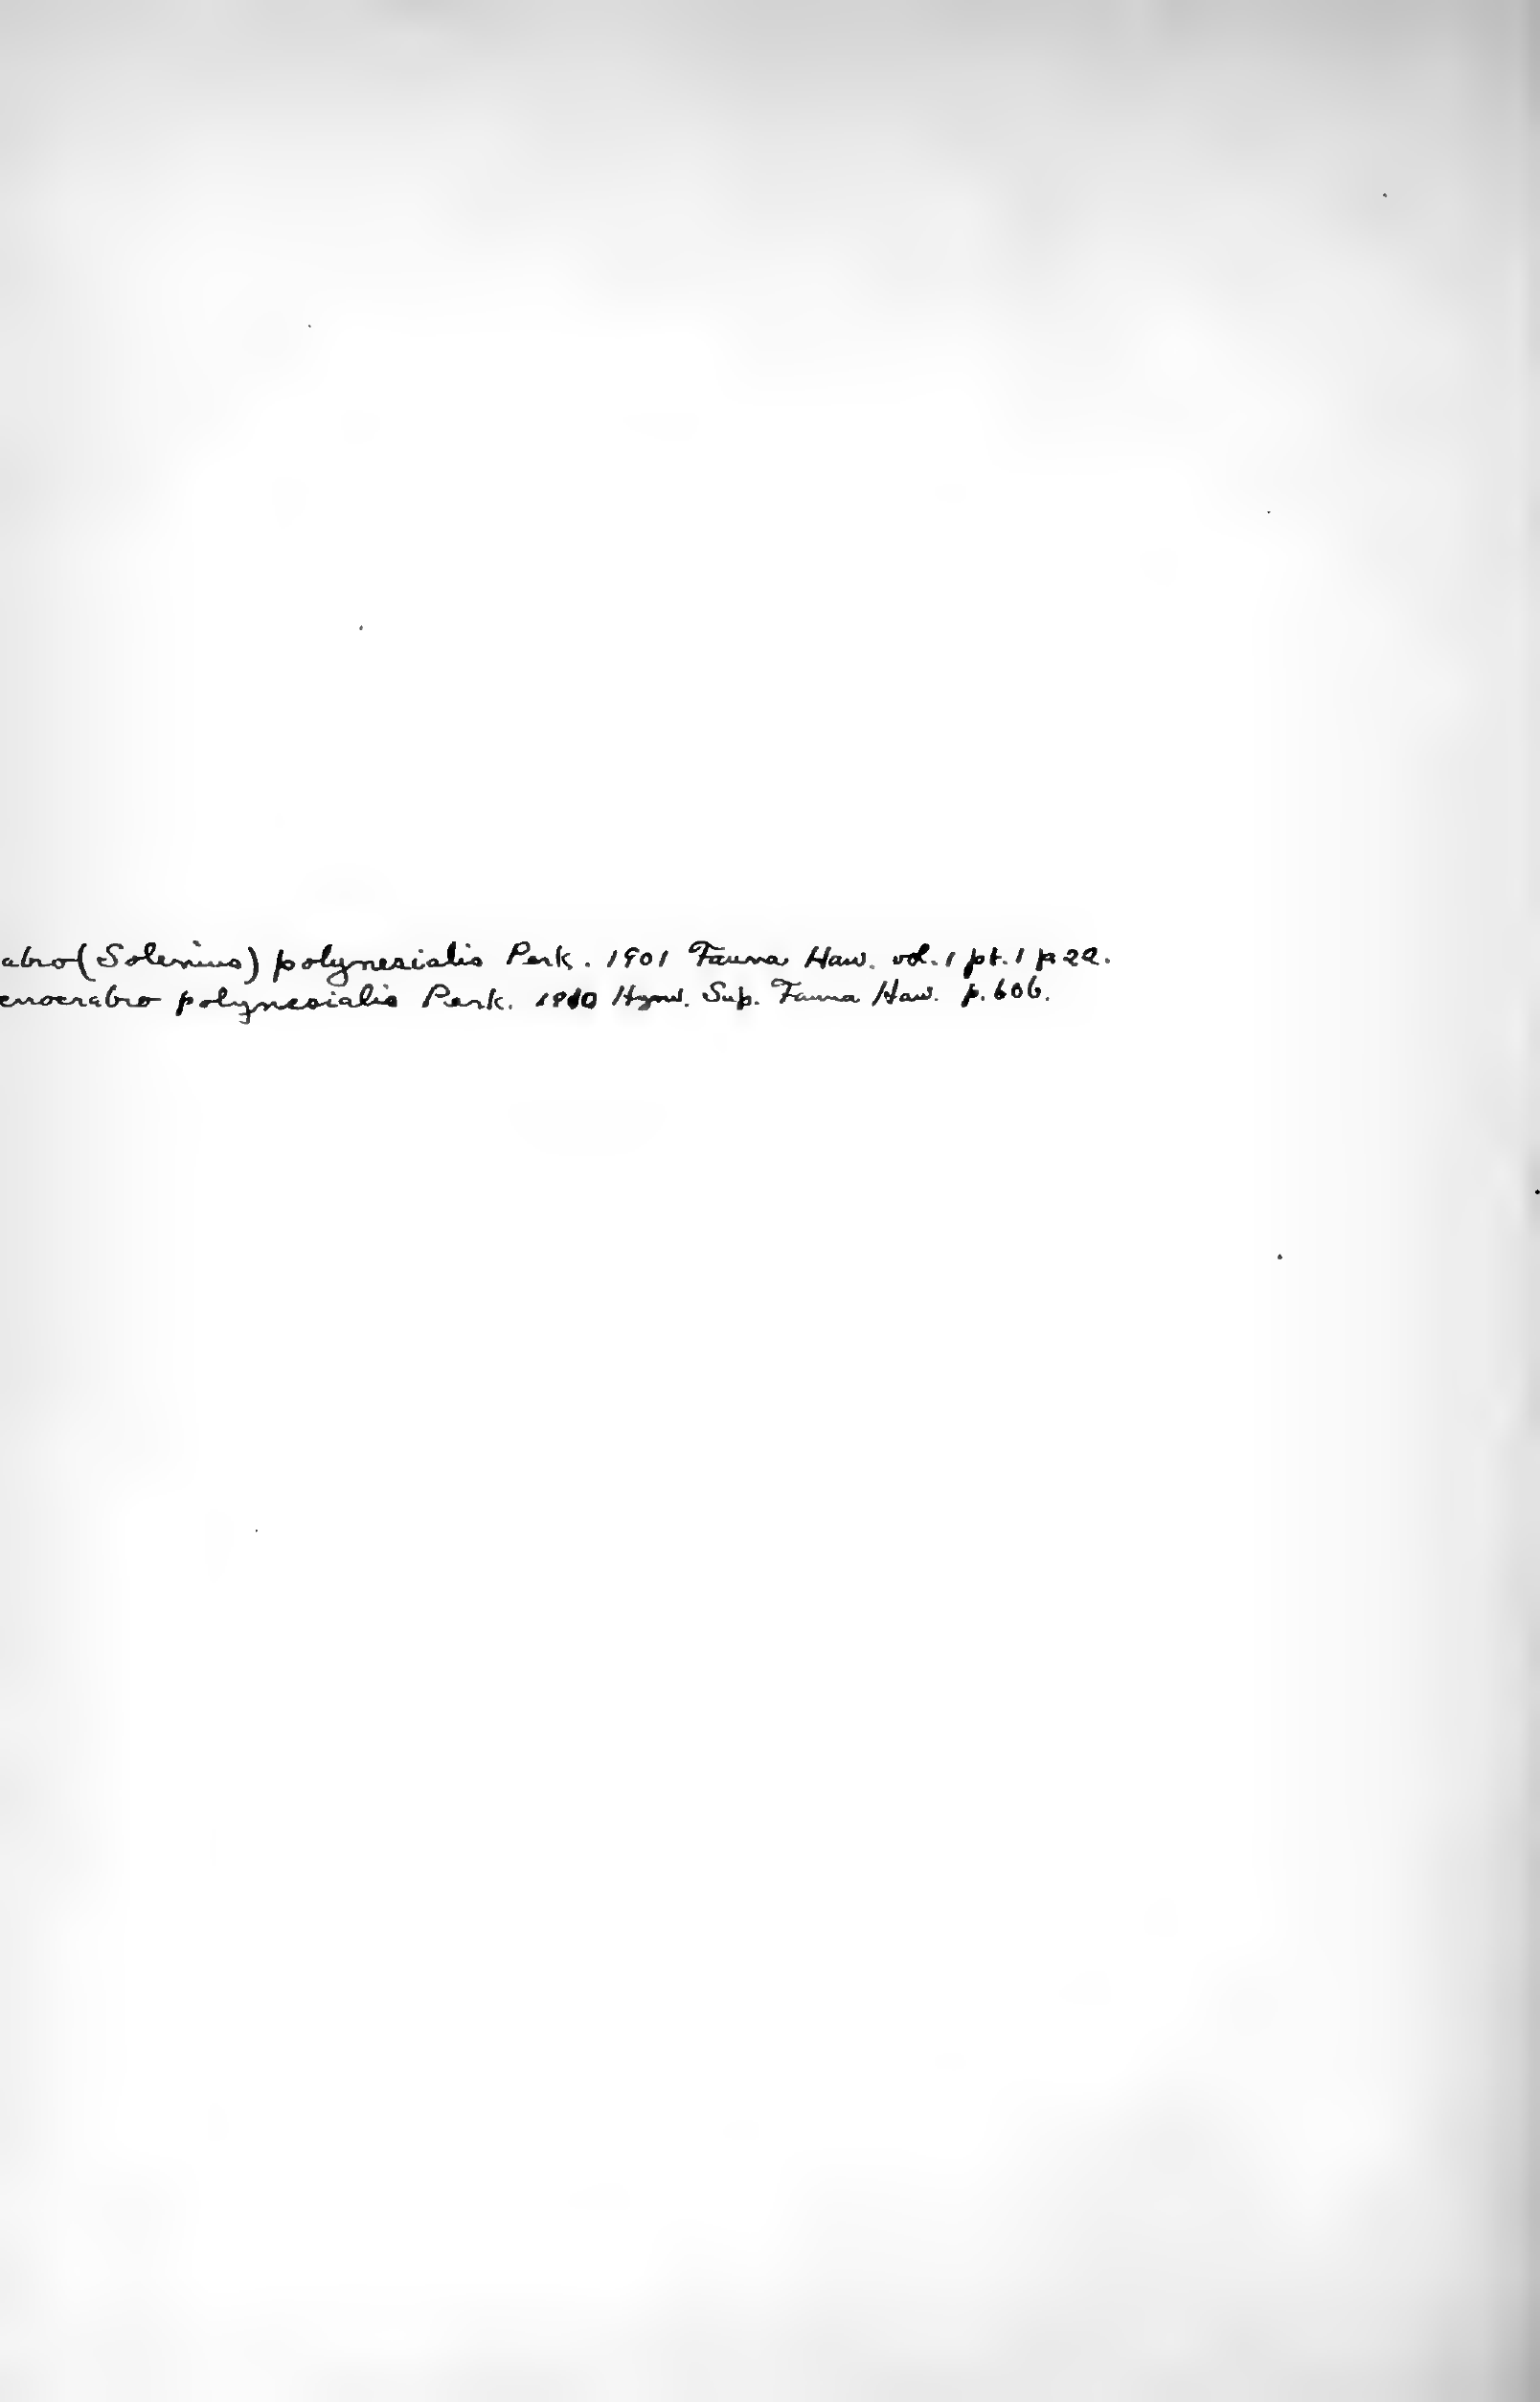 abro (Solenius) polynesialis Perk. 1901 Fauna Haw. vol. 1 pt. 1 p 22.
enocrabro polynesialis Perk. 1910 Hym. Sup. Fauna Haw. p. 606.